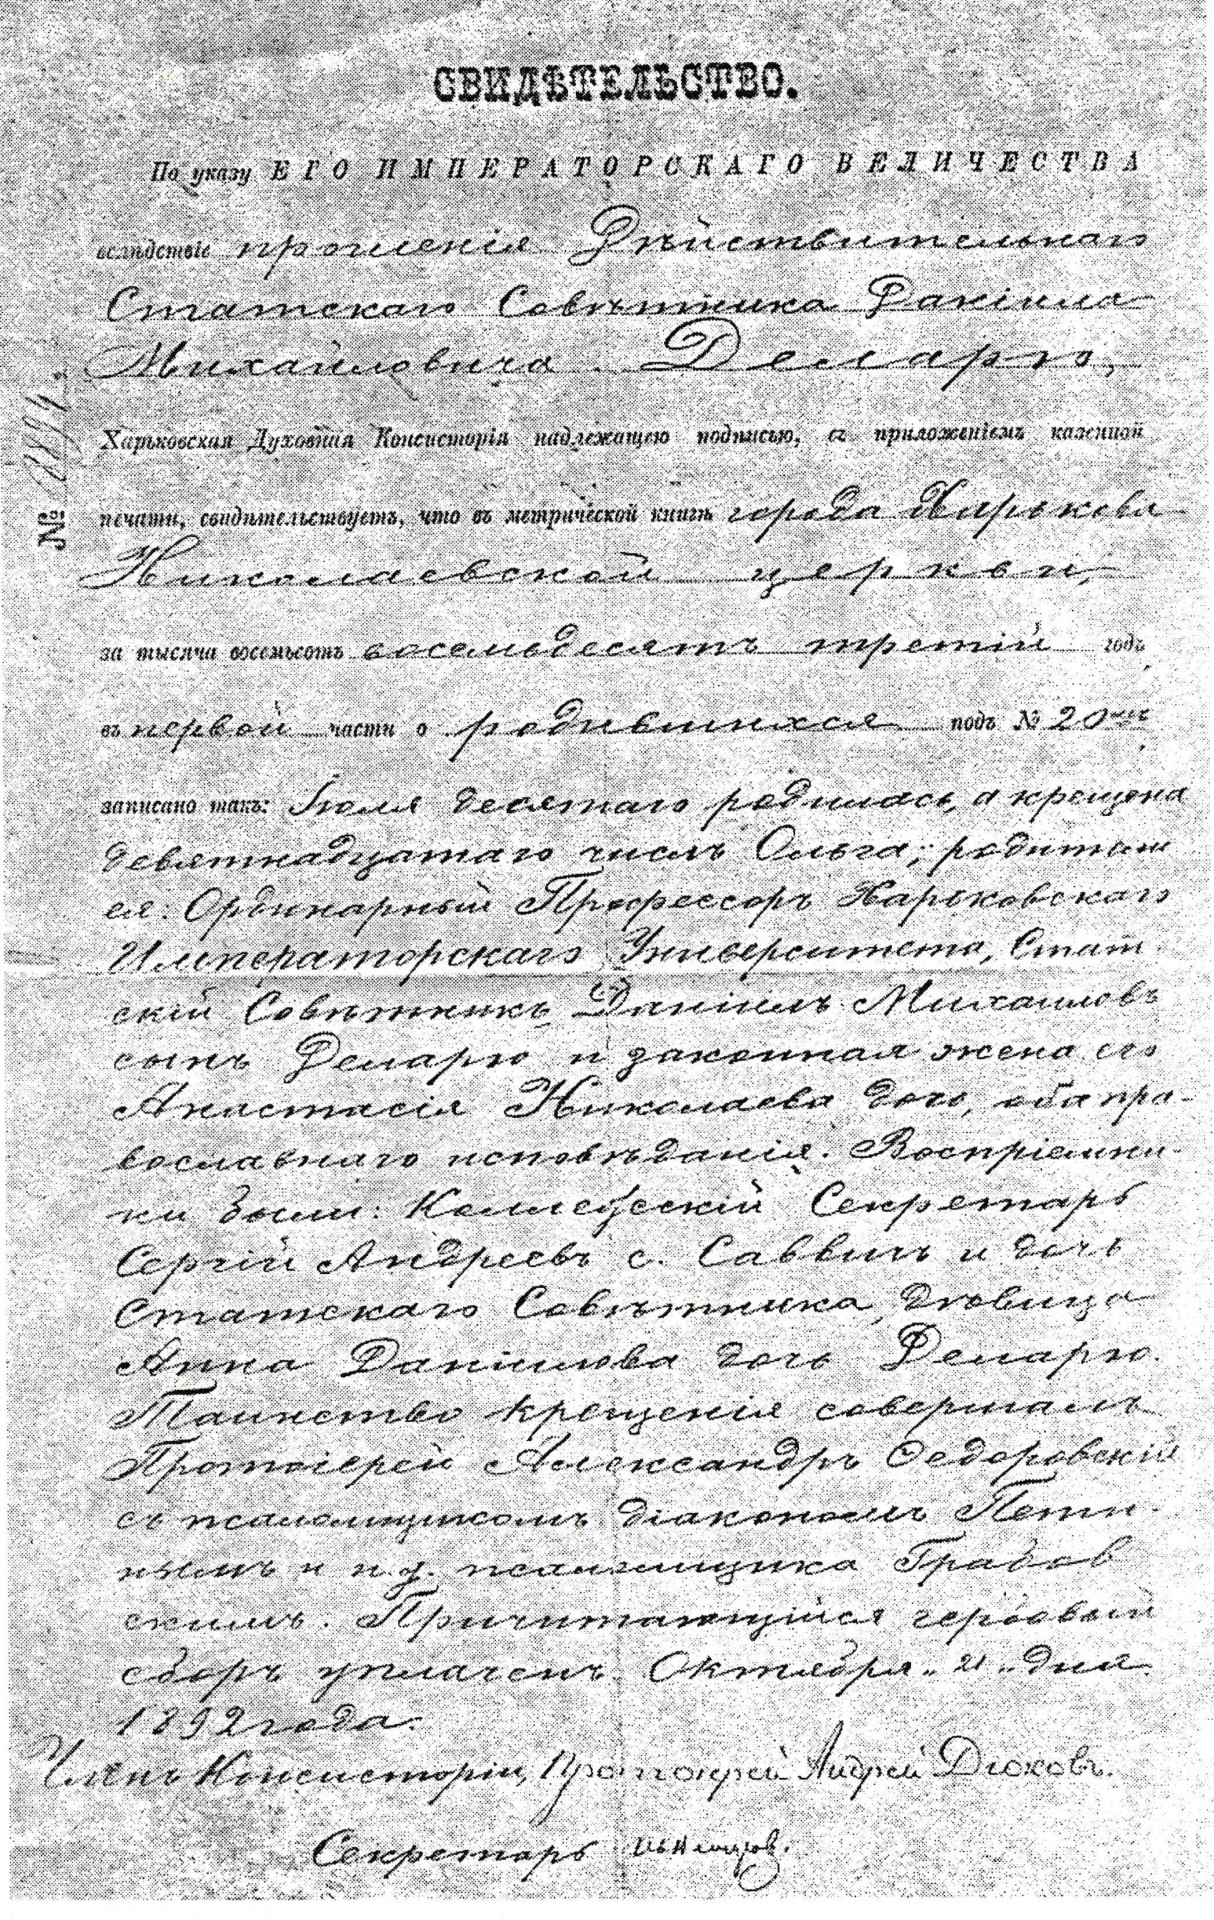 СВИДѢТЕЛЬСТВО.
По указу ЕГО ИМПЕРАТОРСКАГО ВЕЛИЧЕСТВА
вслѣдствіе прошенія Дѣйствительнаго
Статскаго Совѣтника Даніила
Михайловича Деларю,
Харьковская Духовная Консисторія надлежащею подписью, съ приложеніемъ казенной
№
печати, свидѣтельствуетъ, что въ метрической книгѣ города Харькова
Николаевской церкви,
за тысяча восемьсотъ восемьдесятъ третій годъ
въ первой части о родившихся подъ № 20
записано такъ: Іюля десятаго родилась, а крещена
девятнадцатаго числъ Ольга; родители
ея: Ординарный Профессоръ Харьковскаго
Императорскаго Университета, Стат
скій Совѣтникъ Даніилъ Михаиловъ
сынъ Деларю и законная жена его
Анастасія Николаева дочь, оба пра-
вославнаго исповѣданія. Воспріемни-
ки были: Коллежскій Секретарь
Сергій Андреевъ с. Саввичъ и дочь
Статскаго Совѣтника, дѣвица
Анна Даніилова дочь Деларю.
Таинство крещенія совершалъ
Протоіерей Александръ Федоровскій
съ псаломщикомъ діакономъ Пети-
нымъ и и.д. псаломщика Грабов
скимъ. Причитающійся гербовый
сборъ уплаченъ. Октября „21„ дня
1892 года.
Членъ Консисторіи, Протоіерей Андрей Дюковъ.
Секретарь